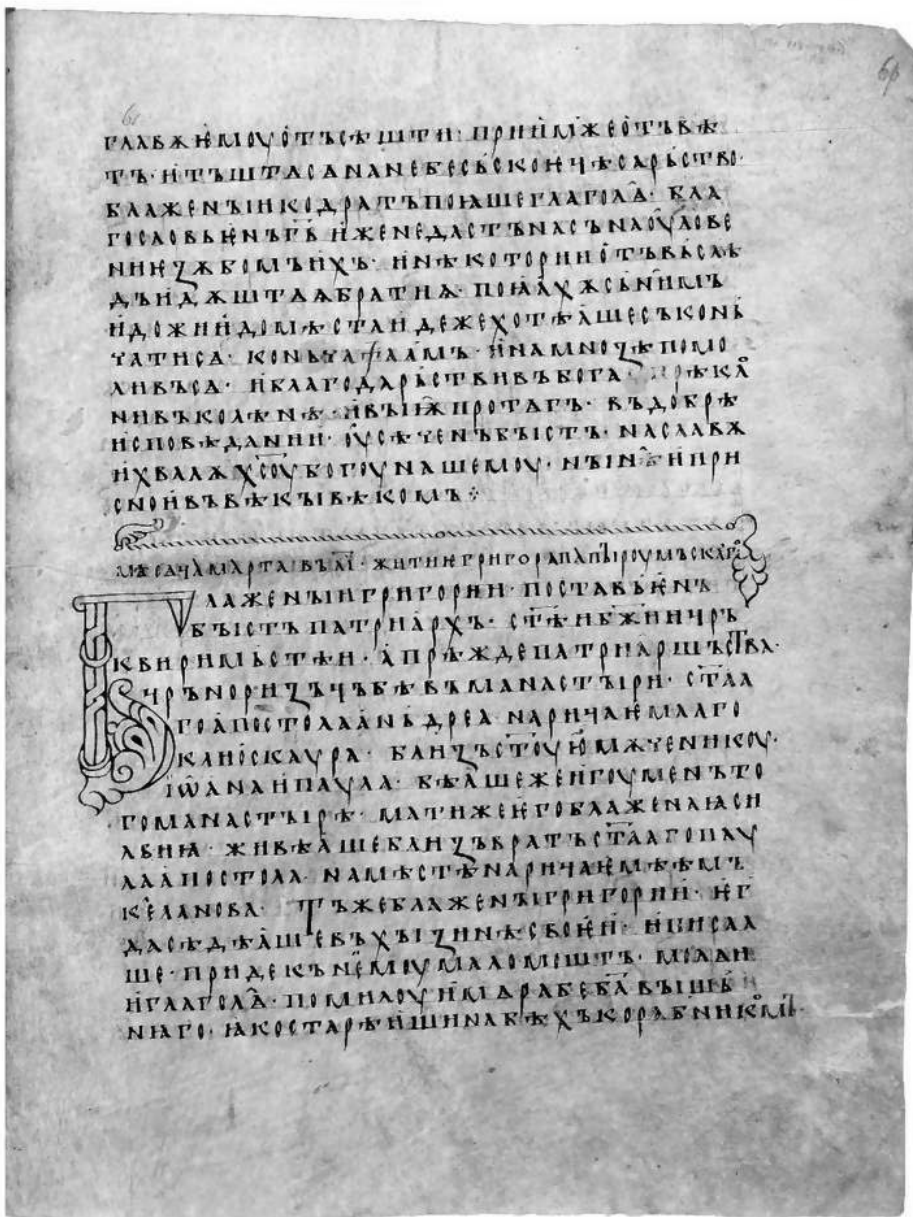 главѫ ѥмоу отъсѣшти· приѥмъ же отъвѣ
тъ· и тъшта сѧ на небесьскоѥ чѣсарьство·
блаженыи кодратъ поꙗше глаголѧ· бла
гословьѥнъ г҃ь иже не дастъ насъ на оулове
ниѥ ѫбомъ ихъ· и нѣкотории отъ въслѣ
дъ идѫштѧѧ братиѧ· поꙗахѫ съ н҄имь
и дожи и до мѣста идеже хотѣаше съкон҄ь
чати сѧ· коньча ѱалмъ· и на мноѕѣ помо
ливъ сѧ· и благодарьствивъ бога прѣкло
нивъ колѣнѣ· и выѭ протѧгъ· въ добрѣ
исповѣдании· оусѣченъ бысть· на славѫ
и хвалѫ х҃соу богоу нашемоу· нын҄ѣ и при
сно и въ вѣкы вѣкомъ ⁘
мѣсѧца марта въ а҃і· житиѥ григора папы роумьскаѥго
Блаженыи григории· поставьѥнъ
бысть патриархъ· ст҃ѣи б҃жии цръ
кви римьстѣи· а прѣжде патриаршьства·
чръноризьць бѣ въ манастыри· ст҃аа
го апостола анъдреа нарицаѥмааго
каиоскаура· близъ ст҃оую мѫченикоу·
іѡана и паула· бѣаше же игоуменъ то
го манастырѣ· мати же ѥго блаженаꙗ си
львиꙗ живѣаше близъ вратъ ст҃ааго пау
ла апостола· на мѣстѣ нарицаѥмѣѣмъ
келанова· Тъже блаженыи григории· ѥг
да сѣдѣаше въ хызинѣ своѥи· и писаа
ше· приде къ н҄ѥмоу маломошть· молѧ и
и глаголѧ· помилоуи мѧ рабе б҃а вышь
нꙗго· ꙗко старѣишина бѣхъ корабникомъ·